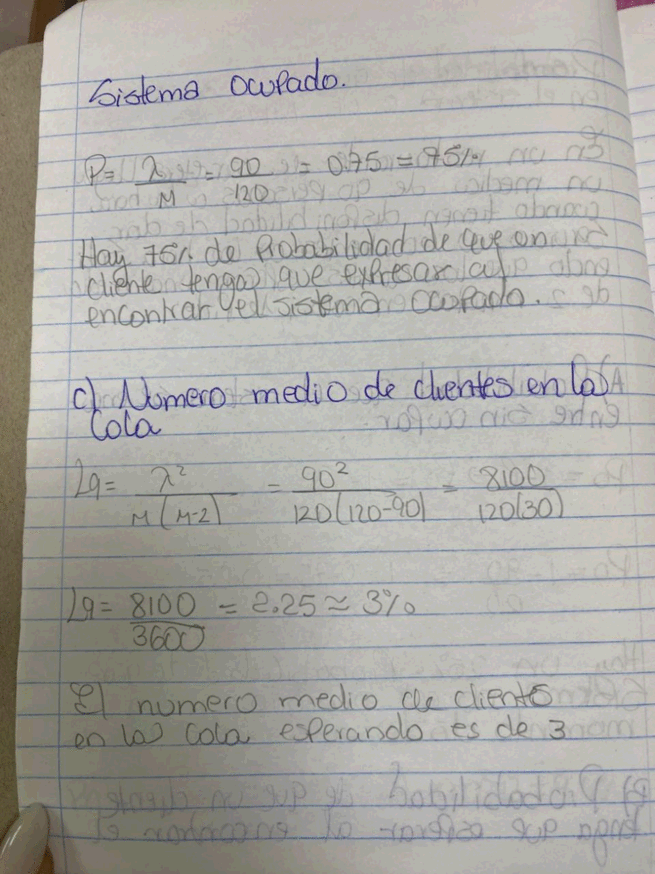 Sistema Ocupado.
P= λ/M = 90/120 = 0.75 = 75%
Hay 75% de Probabilidad de que un
cliente tenga que expresar al
encontrar el sistema ocupado.
c) Numero medio de clientes en la
Cola
Lq= λ²/M(M-2) = 90²/120(120-90) = 8100/120(30)
Lq= 8100/3600 = 2.25 ≈ 3%
El numero medio de cliente
en la cola esperando es de 3